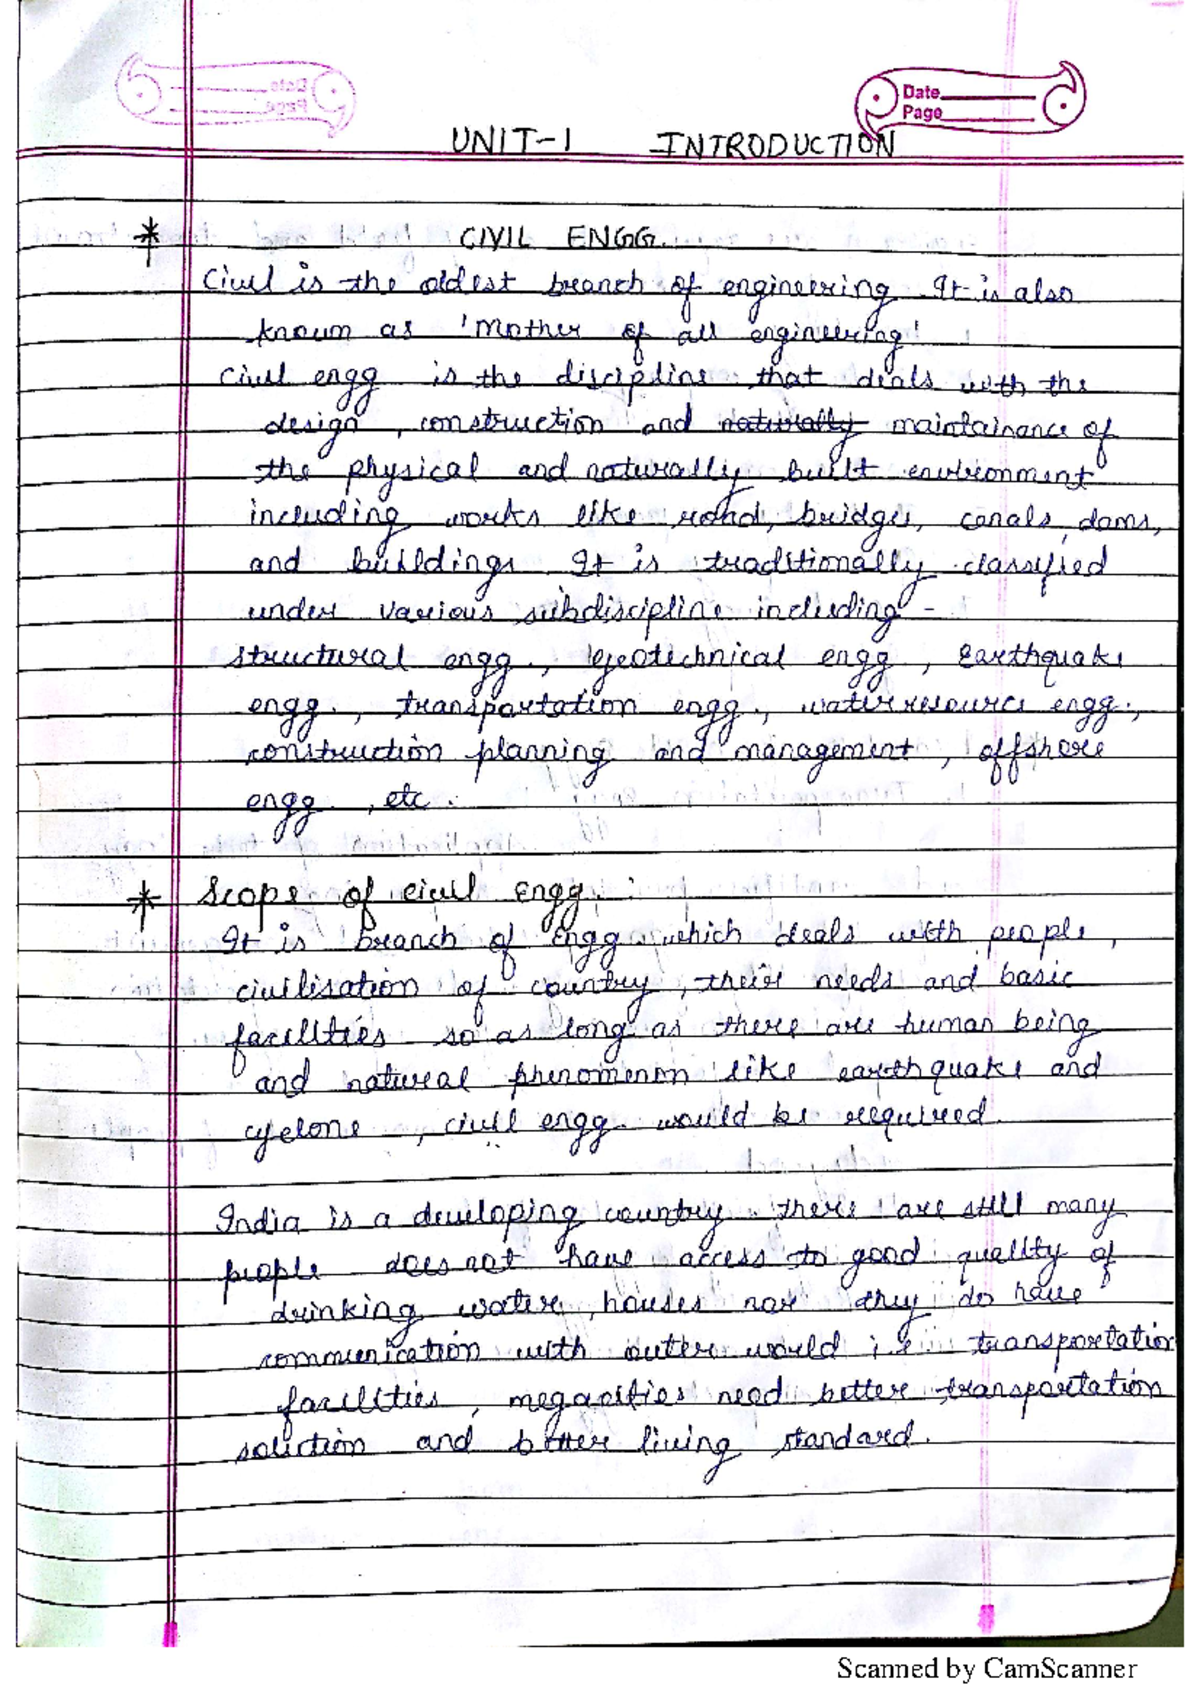 Date
Page
UNIT-1 INTRODUCTION
* CIVIL ENGG.
Civil is the oldest branch of engineering. It is also
known as 'Mother of all engineering'
Civil engg is the discipline that deals with the
design, construction and naturally maintainance of
the physical and naturally built environment
including works like road, bridges, canals, dams,
and buildings. It is traditionally classified
under various subdiscipline including -
structural engg., Geotechnical engg, Earthquake
engg., transportation engg., water resource engg.,
construction planning and management, offshore
engg., etc.
* Scope of civil engg. :
It is branch of engg. which deals with people,
civilisation of country, their needs and basic
facilities so as long as there are human being
and natural phenomenon like earthquake and
cyclone, civil engg. would be required.
India is a developing country. there are still many
people does not have access to good quality of
drinking water, houses nor they do have
communication with outer world i.e transportation
facilities, megacities need better transportation
solution and better living standard.
Scanned by CamScanner